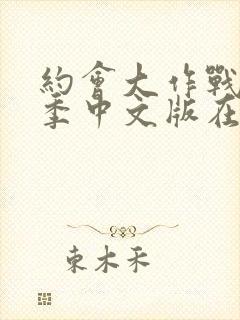 約會大作戰
季中文版在
東木禾